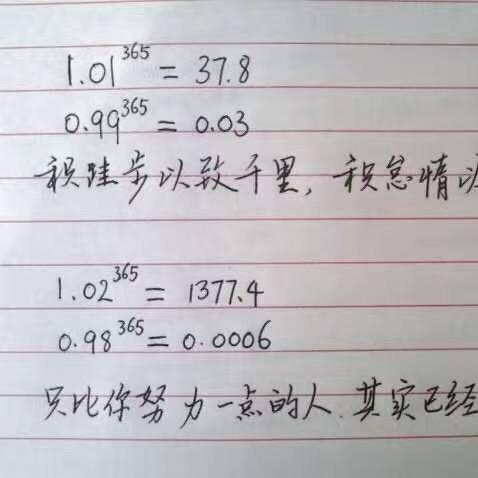 1.01^365 = 37.8
0.99^365 = 0.03
积跬步以致千里，积怠惰以
1.02^365 = 1377.4
0.98^365 = 0.0006
只比你努力一点的人.其实已经